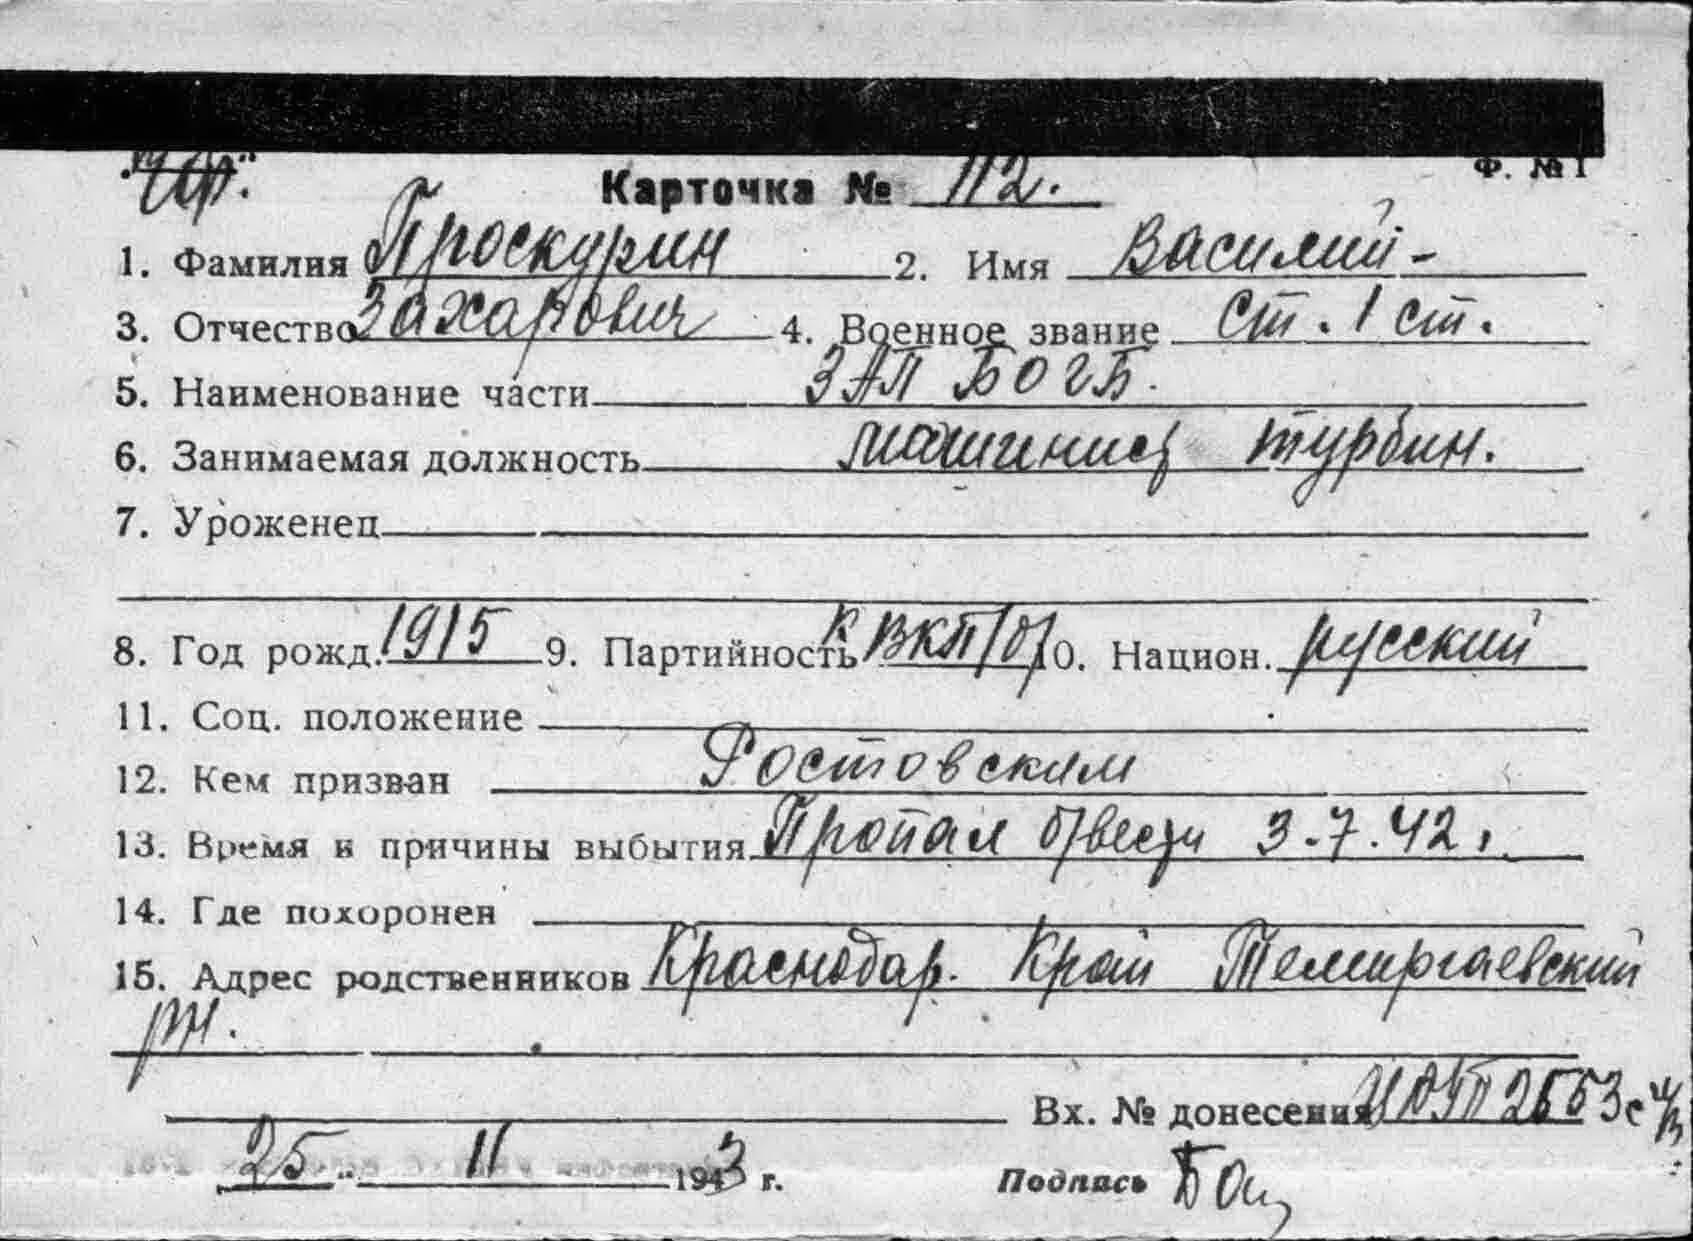 Ф. № 1
Карточка № 112.
1. Фамилия Проскурин 2. Имя Василий -
3. Отчество Захарович 4. Военное звание Ст. 1 ст.
5. Наименование части ЗАП БОГБ.
6. Занимаемая должность машинист турбин.
7. Уроженец
8. Год рожд. 1915 9. Партийность К ВКП/б/ 10. Национ. русский
11. Соц. положение
12. Кем призван Ростовским
13. Время и причины выбытия Пропал б/вести 3.7.42.
14. Где похоронен
15. Адрес родственников Краснодар. Край Темиргаевский
рн.
Вх. № донесения 2653с
25 11 1943 г. Подпись